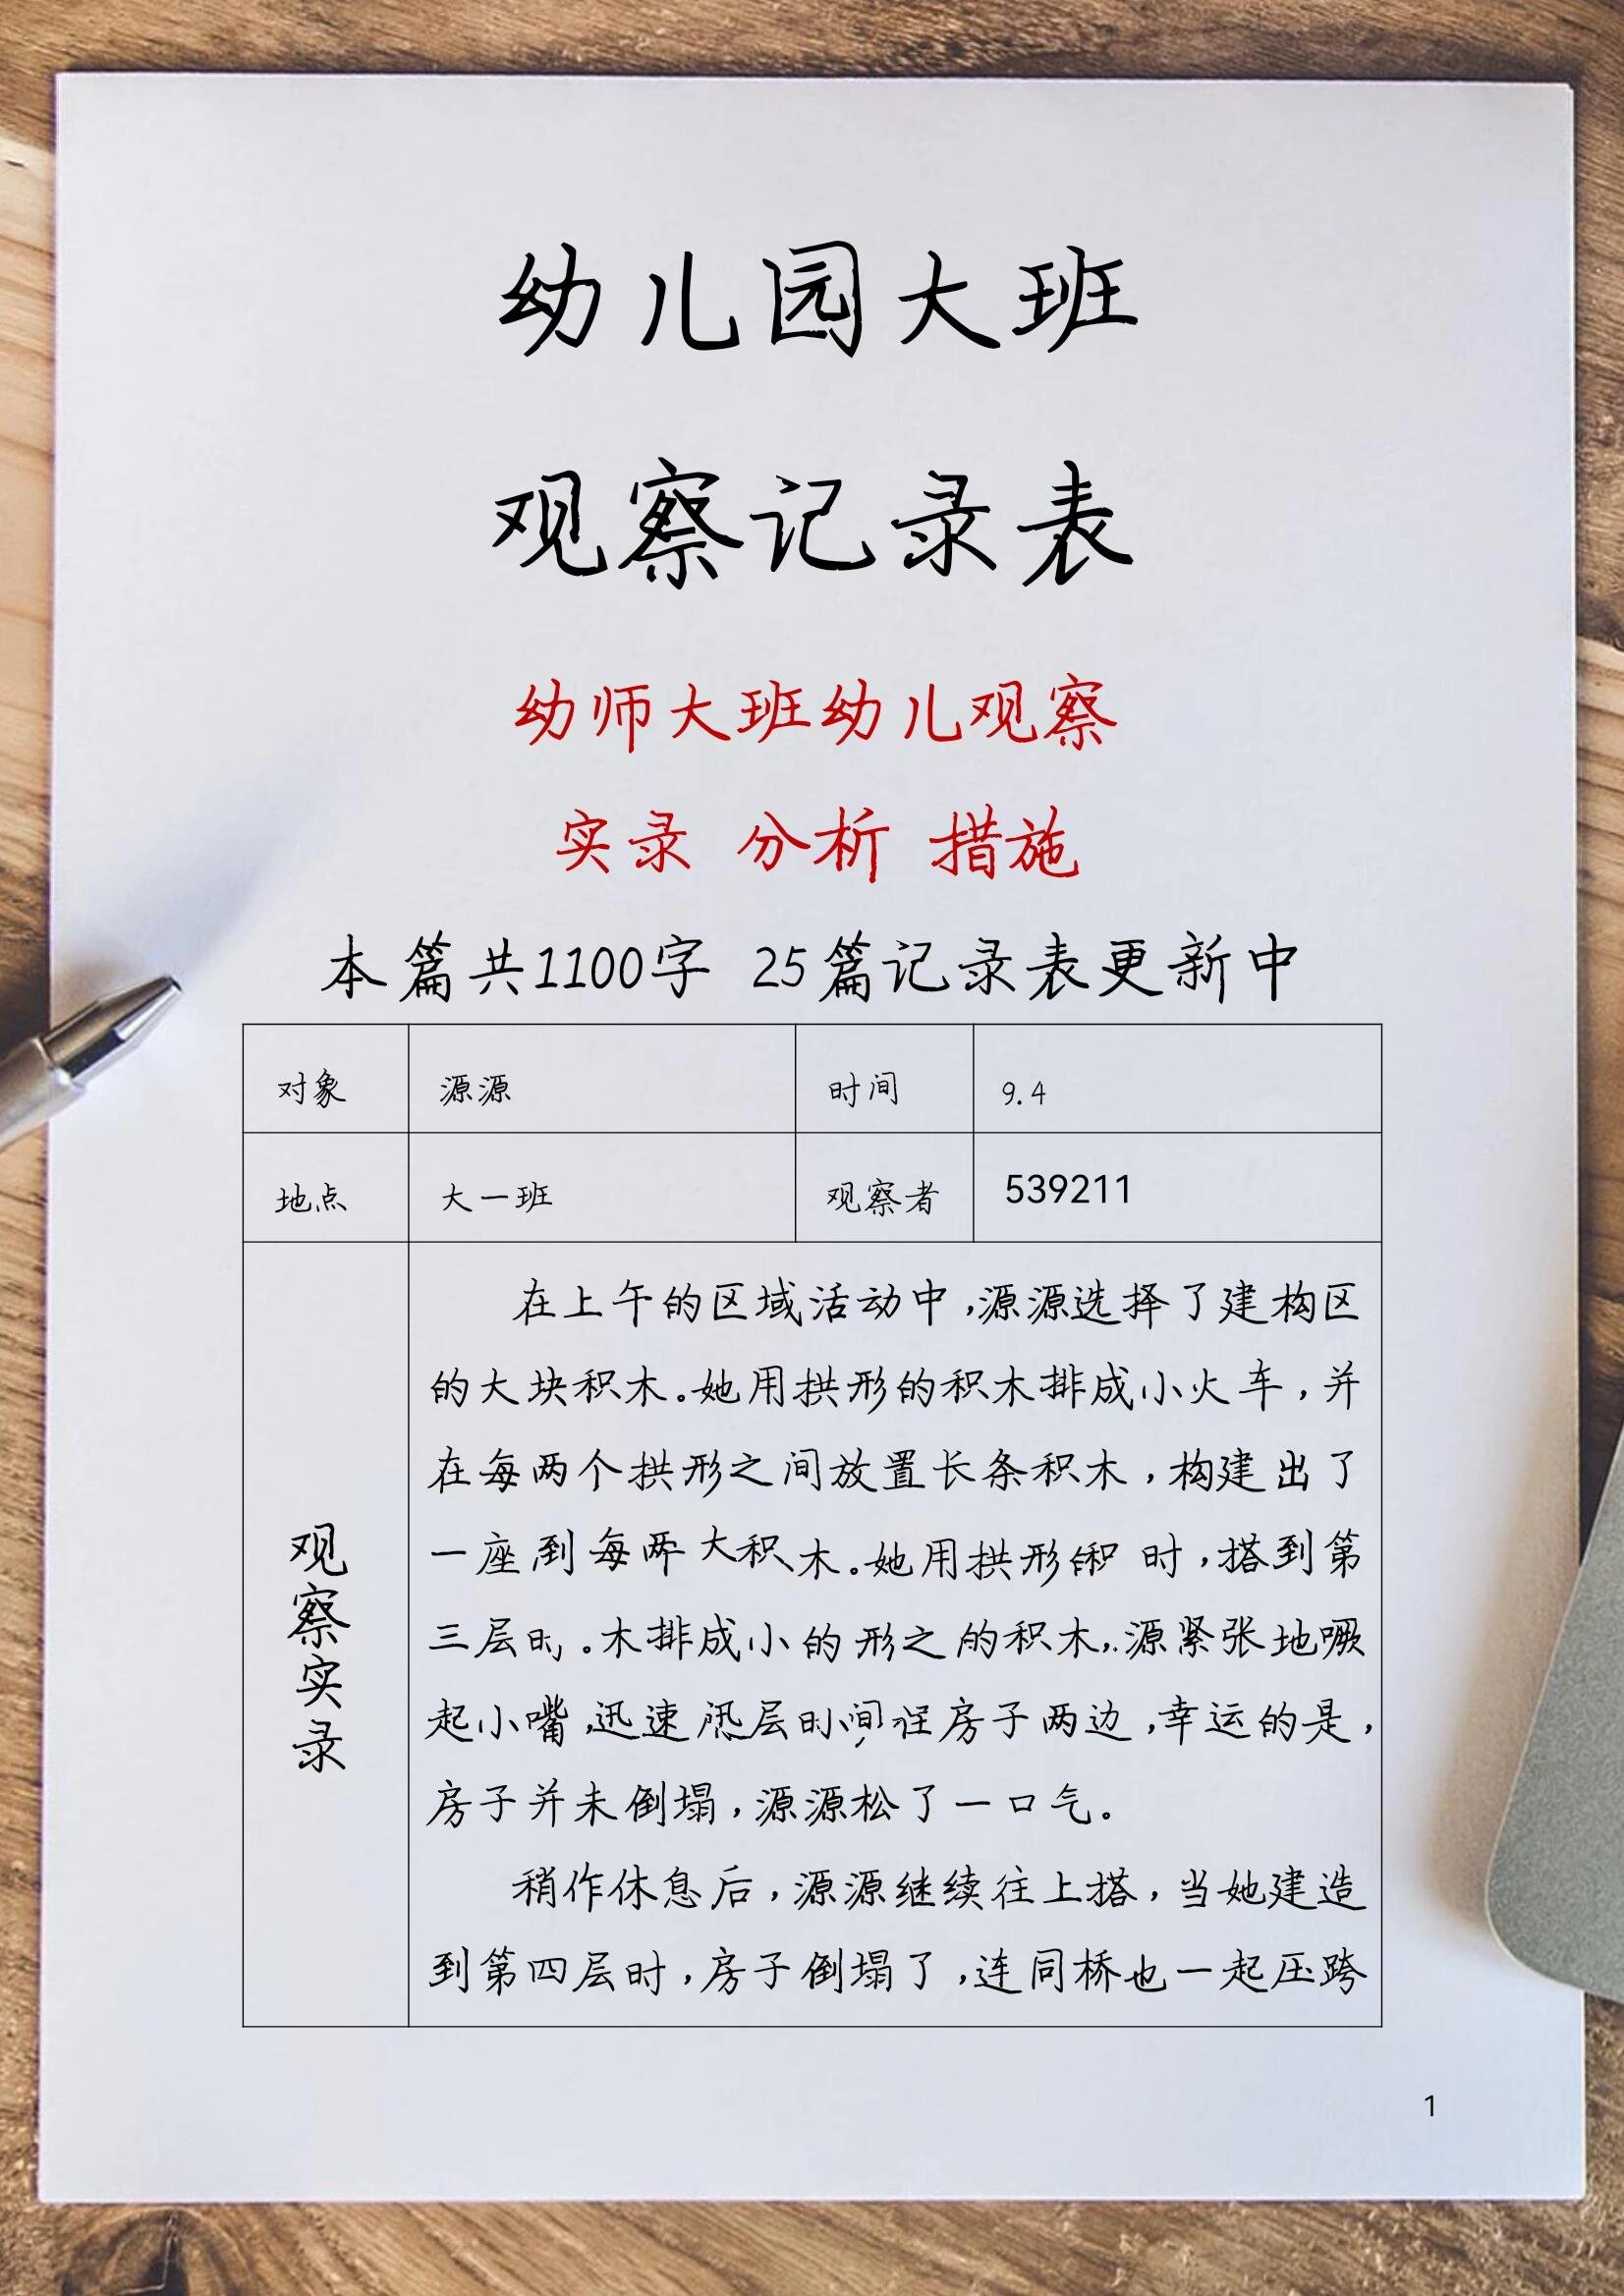 幼儿园大班
观察记录表
幼师大班幼儿观察
实录 分析 措施
本篇共1100字 25篇记录表更新中
对象 源源 时间 9.4
地点 大一班 观察者 539211
观察实录
在上午的区域活动中,源源选择了建构区
的大块积木。她用拱形的积木排成小火车,并
在每两个拱形之间放置长条积木,构建出了
一座到每两大积木。她用拱形 时,搭到第
三层 。木排成小的形之的积木,源紧张地噘
起小嘴,迅速 层 间 房子两边,幸运的是,
房子并未倒塌,源源松了一口气。
稍作休息后,源源继续往上搭,当她建造
到第四层时,房子倒塌了,连同桥也一起压跨
1